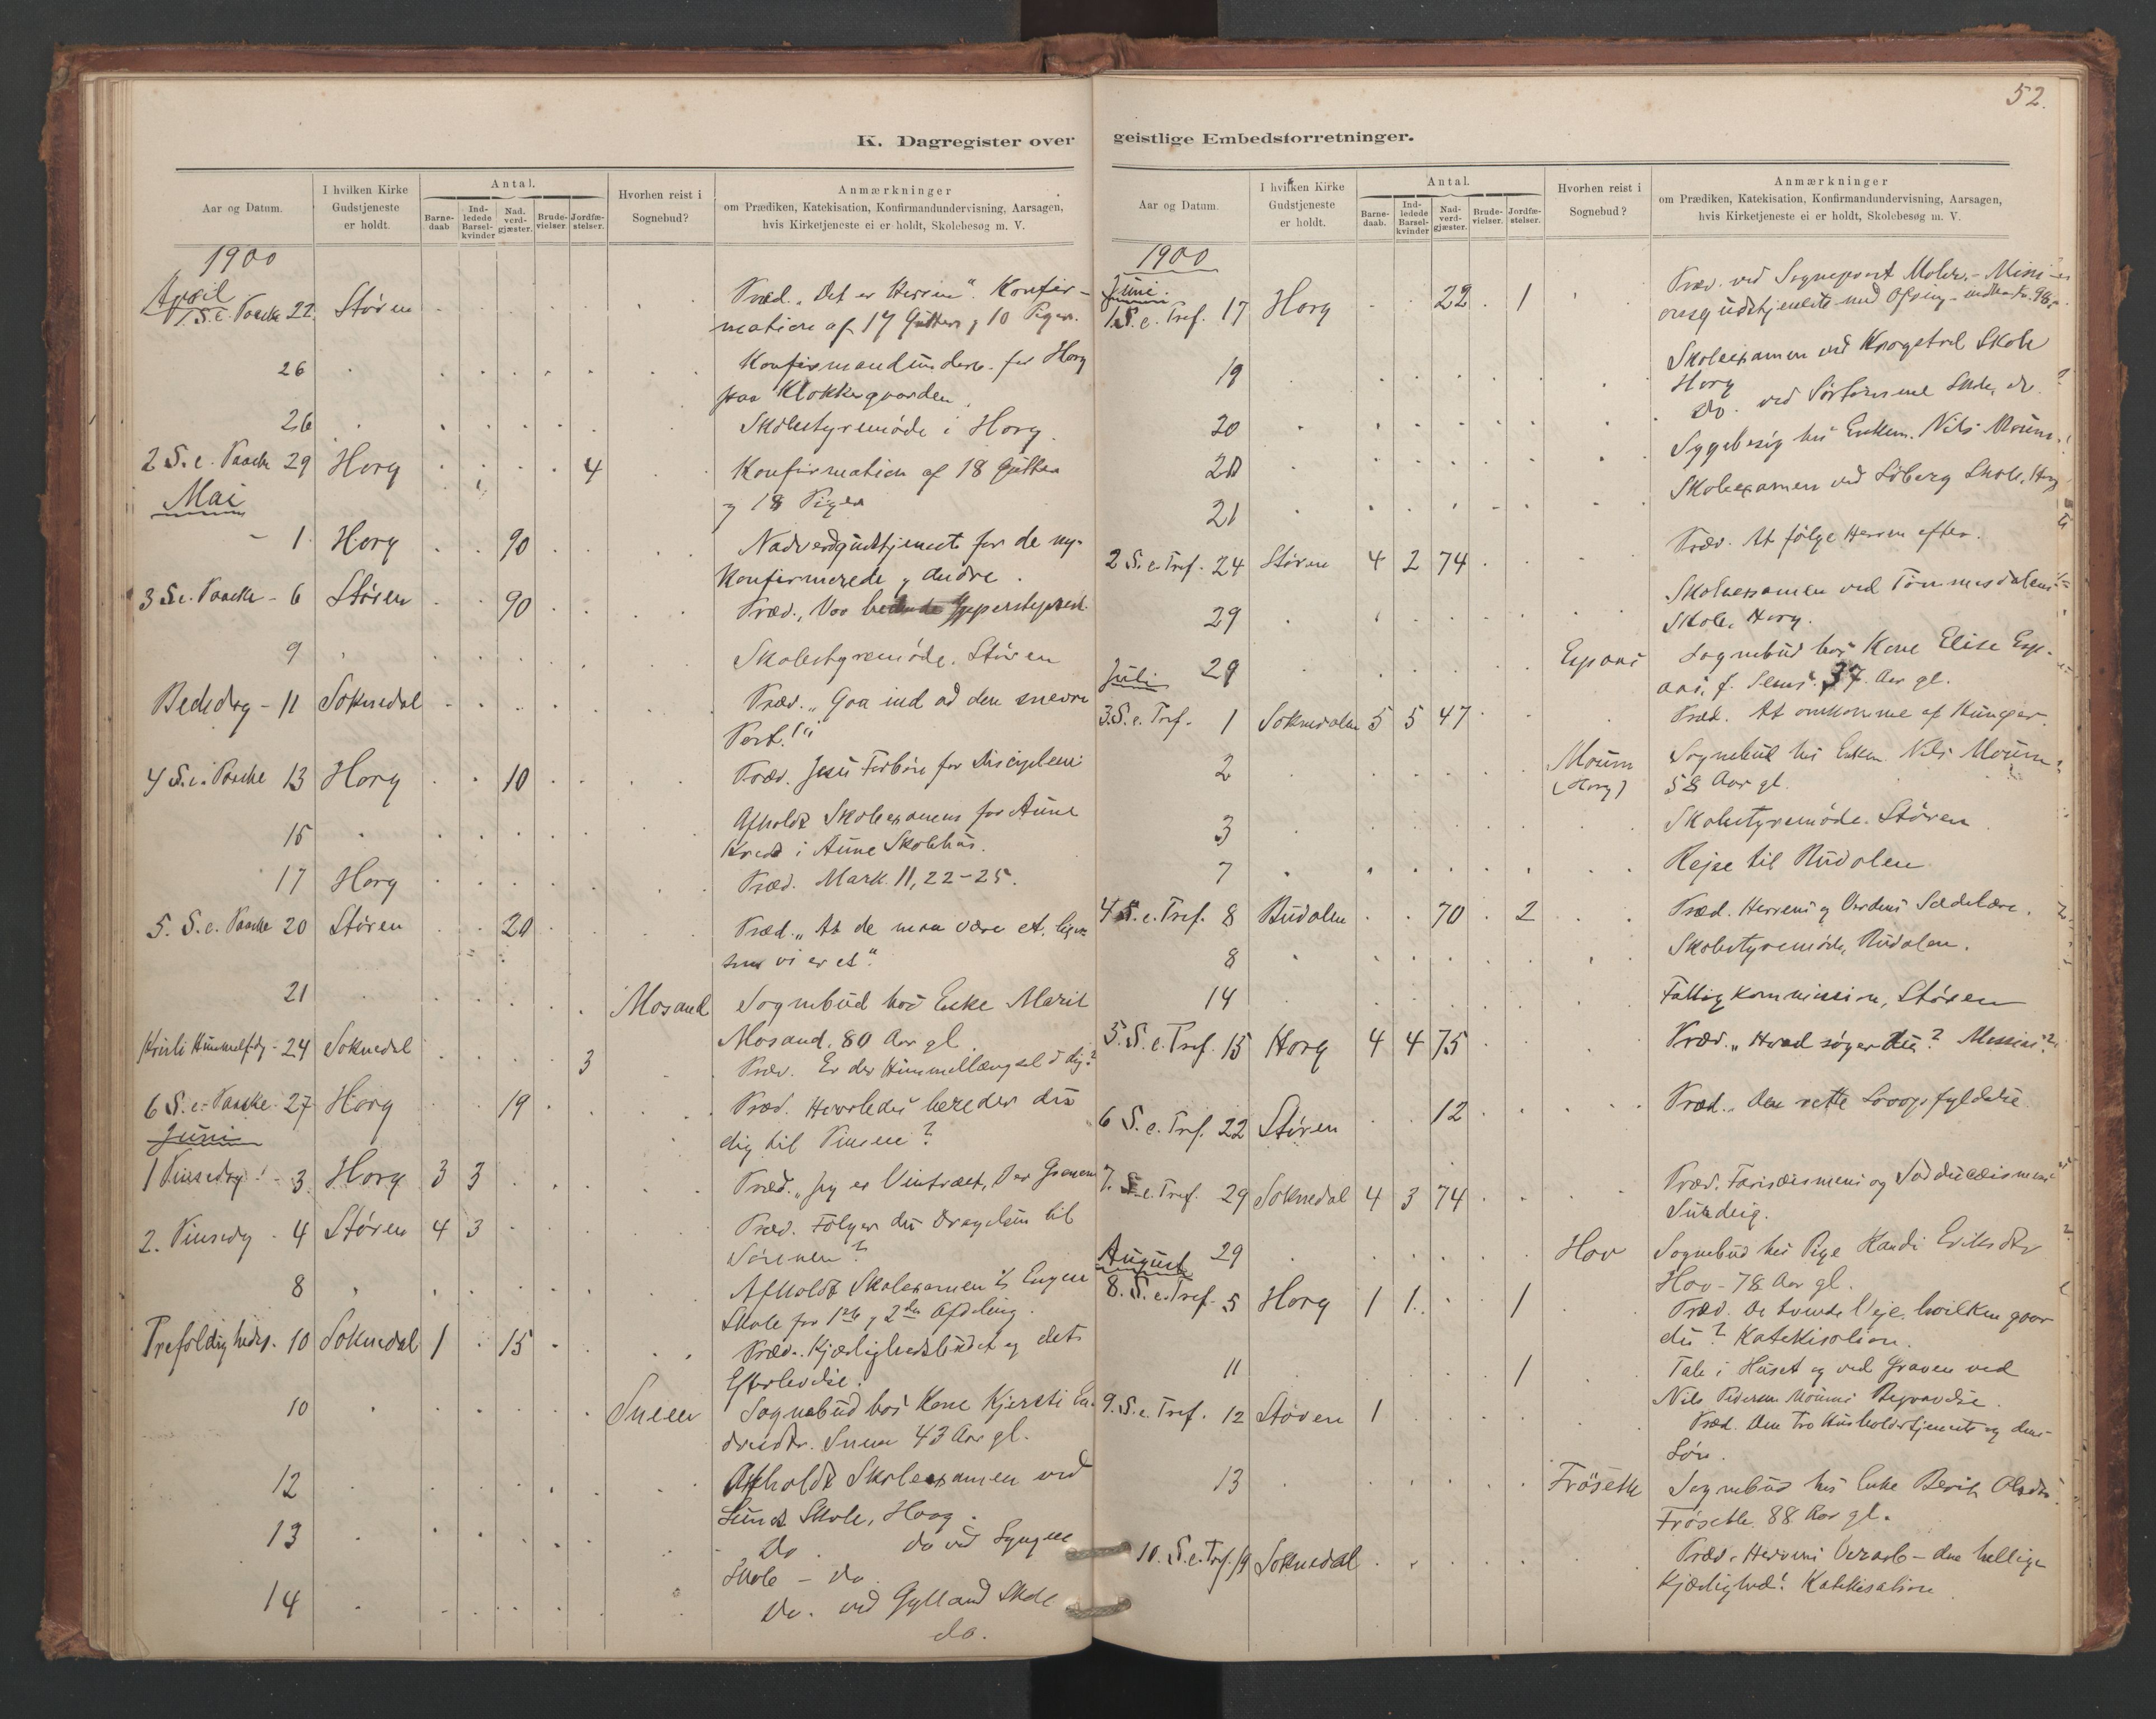 52.
K. Dagregister over
Aar og Datum.
I hvilken Kirke
Gudstjeneste
er holdt.
Antal.
Barne-
daab
Ind-
ledede
Barsel-
kvinder
Nad-
verd-
gjæster.
Brude-
vielser.
Jordfæ-
stelser.
Hvorhen reist i
Sognebud?
Anmærkninger
om Prædiken, Katekisation, Konfirmandundervisning, Aarsagen,
hvis Kirketjeneste ei er holdt, Skolebesøg m. V.
1900
April
1 S. e. Paaske 22. Støren Præd. „Det er Herren“. Konfir-
mation af 17 Gutter og 10 Piger.
26 Konfirmandunderv. for Horg
paa Klokkergaarden.
26 Skolestyremøde i Horg.
2 S. e. Paaske 29 Horg 4 Konfirmation af 18 Gutter
og 18 Piger
Mai
- 1. Horg 90 Nadverdgudstjeneste for de ny-
konfirmerede og andre.
3 S. e. Paaske - 6 Støren 90 Præd. Vor Ypperstepræst
9 Skolestyremøde. Støren
Bededag - 11 Soknedal Præd. „Gaa ind ad den snevre
Port!“
4 S. e. Paaske 13 Horg 10 Præd. Jesu Forbøn for Disciplene
15 Afholdt Skoleexamen for Aune
Kreds i Aune Skolehus.
17 Horg Præd. Mark. 11, 22-25.
5. S. e. Paaske 20 Støren 20 Præd. „At de maa være et, ligesom
som vi er et“.
21 Mosand Sognebud hos Enke Marit
Mosand, 80 Aar gl.
Kristi Himmelfdg - 24 Soknedal 3 Præd. Er der Himmellængsel i dig?
6 S. e. Paaske 27 Horg 19 Præd. Hvorledes bereder du
dig til Pinsen?
Juni
1 Pinsedag - 3. Horg 3 3 Præd. „Jeg er Vintræet, I er Grenene
2. Pinsedg - 4 Støren 4 3 Præd. Følger du Dragelsen til
Sønnen?
8 Afholdt Skoleexamen i Engen
Skole for 1ste og 2den Afdeling.
Trefoldighedss. 10 Soknedal 1 15 Præd. Kjærlighedsbudet og dets
Efterlevelse.
10 Sneen Sognebud hos Kone Kjersti En-
dredtr. Sneen 43 Aar gl.
12 Afholdt Skoleexamen ved
Lunds Skole, Horg.
13 Do. do ved Syngen
Skole - do
14 Do. ved Gylland Skole
do.
geistlige Embedsforretninger.
Aar og Datum.
I hvilken Kirke
Gudstjeneste
er holdt.
Antal.
Barne-
daab.
Ind-
ledede
Barsel-
kvinder
Nad-
verd-
gjæster.
Brude-
vielser.
Jordfæ-
stelser.
Hvorhen reist i
Sognebud?
Anmærkninger
om Prædiken, Katekisation, Konfirmandundervisning, Aarsagen,
hvis Kirketjeneste ei er holdt, Skolebesøg m. V.
1900
Juni.
1. S. e. Tref. 17 Horg 22 1 Præd. ved Sogneprest Missi-
onsgudstjeneste med Ofring
19 Skoleexamen ved Krogstad Skole
Horg
20 Do. ved Skole, do.
20 Sygebesøg hos Nils Moum.
21 Skoleexamen ved Løberg Skole, Horg
2 S. e. Tref. 24 Støren 4 2 74 Præd. At følge Herren efter.
29 Skoleexamen ved Tømmesdalens
Skole, Horg.
29 Espaas Sognebud hos Kone Elise Esp-
aas, f. 37 Aar gl.
Juli
3. S. e. Tref. 1 Soknedalen 5 5 47 Præd. At omkomme af Hunger.
2 Moum Sognebud hos Nils Moum
(Horg) 58 Aar gl.
3 Skolestyremøde. Støren
7 Rejse til Budalen
4 S. e. Tref. 8 Budalen 70 2 Præd. Herrens og Verdens Sædelære.
8 Skolestyremøde, Budalen.
14 Fattigkommission, Støren
5. S. e. Tref. 15 Horg 4 4 75 Præd. „Hvad søger du? Messias?
6 S. e. Tref. 22 Støren 12 Præd. Den rette Lovopfyldelse
7. S. e. Tref. 29 Soknedal 4 3 74 Præd. Farisæismens og Sadducæismens
Surdeig.
29 Hov Sognebud hos Pige Randi Eriksdtr
Hov - 78 Aar gl.
August
8. S. e. Tref. 5 Horg 1 1 1 Præd. De tvende Veje, hvilken gaar
du? Katekisation.
11 1 Tale i Huset og ved Graven ved
Nils Pedersen Moums Begravelse.
9. S. e. Tref. 12 Støren 1 Præd. Den tro Husholdertjeneste og dens
Løn.
13 Frøseth Sognebud hos Enke Berit Olsdtr.
Frøseth 88 Aar gl.
10. S. e. Tref. 19 Soknedal Præd. Herrens - den hellige
Kjærlighed! Katekisation